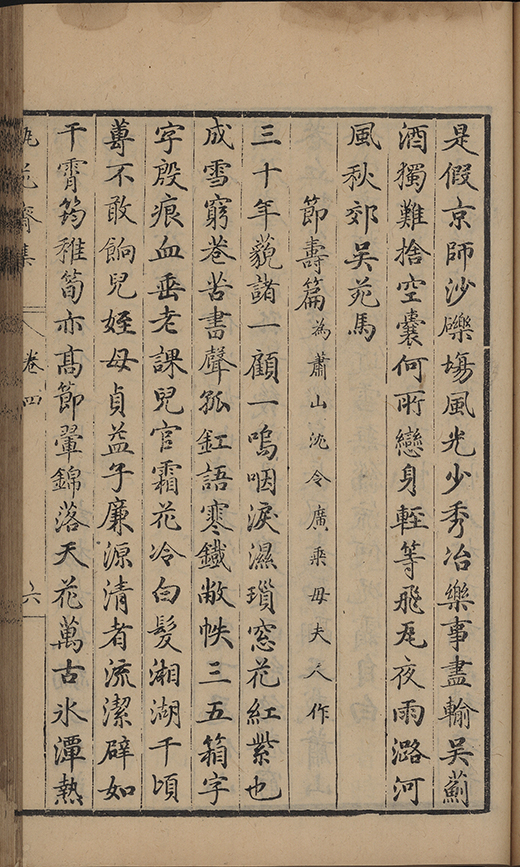 是假京師沙礫塲風光少秀冶樂事盡輸吳薊
酒獨難捨空囊何所戀身輊等飛瓦夜雨潞河
風秋郊吳苑馬
節壽篇為蕭山沈令廣乘母夫人作
三十年藐諸一顧一嗚咽淚濕瑣窓花紅紫也
成雪窮巷苦書聲孤釭語寒鐵敝帙三五箱字
字殷痕血垂老課兒官霜花冷白髮湘湖千頃
蓴不敢餉兒姪母貞益子廉源清者流潔辟如
干霄筠稚筍亦髙節翬錦落天花萬古氷潭熱
齋集
卷四
六